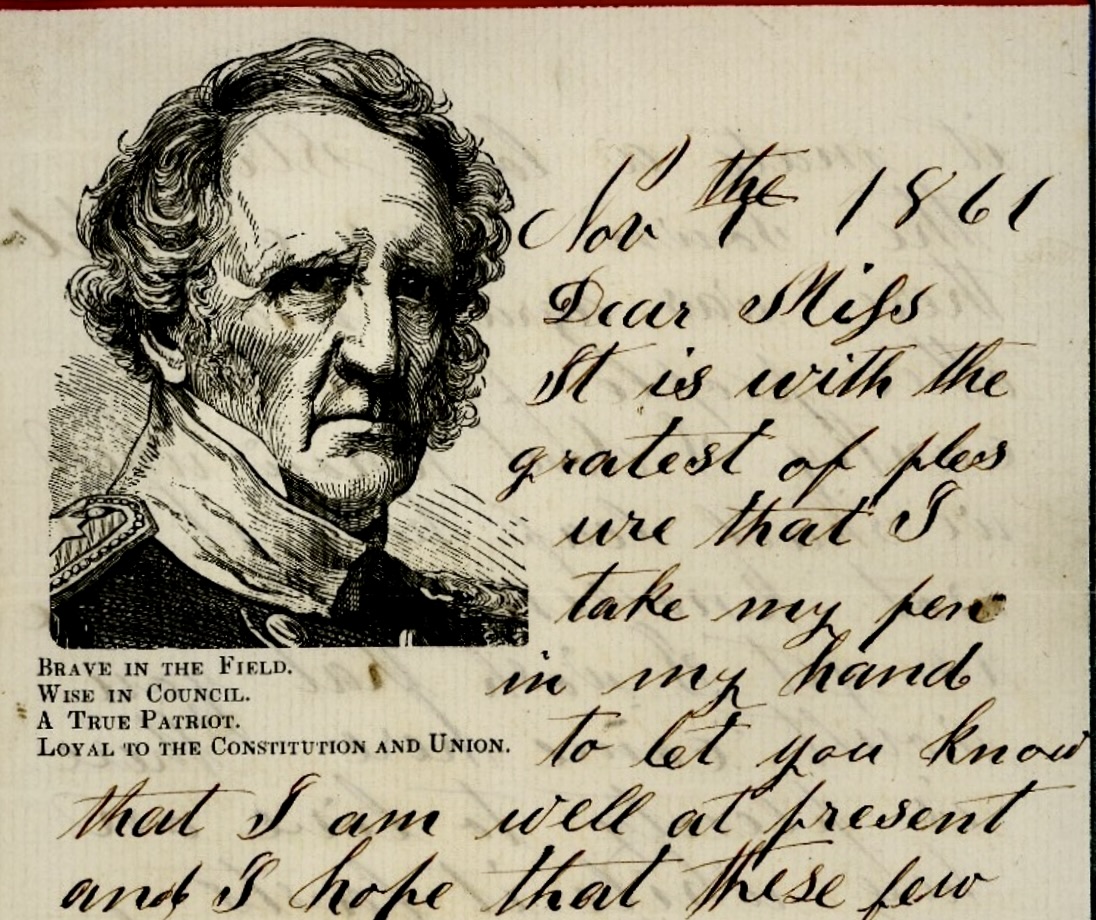 Nov the 7 1861
Dear Miss
It is with the
gratest of ples
ure that I
take my pen
in my hand
to let you know
that I am well at present
and I hope that these few
BRAVE IN THE FIELD.
WISE IN COUNCIL.
A TRUE PATRIOT.
LOYAL TO THE CONSTITUTION AND UNION.